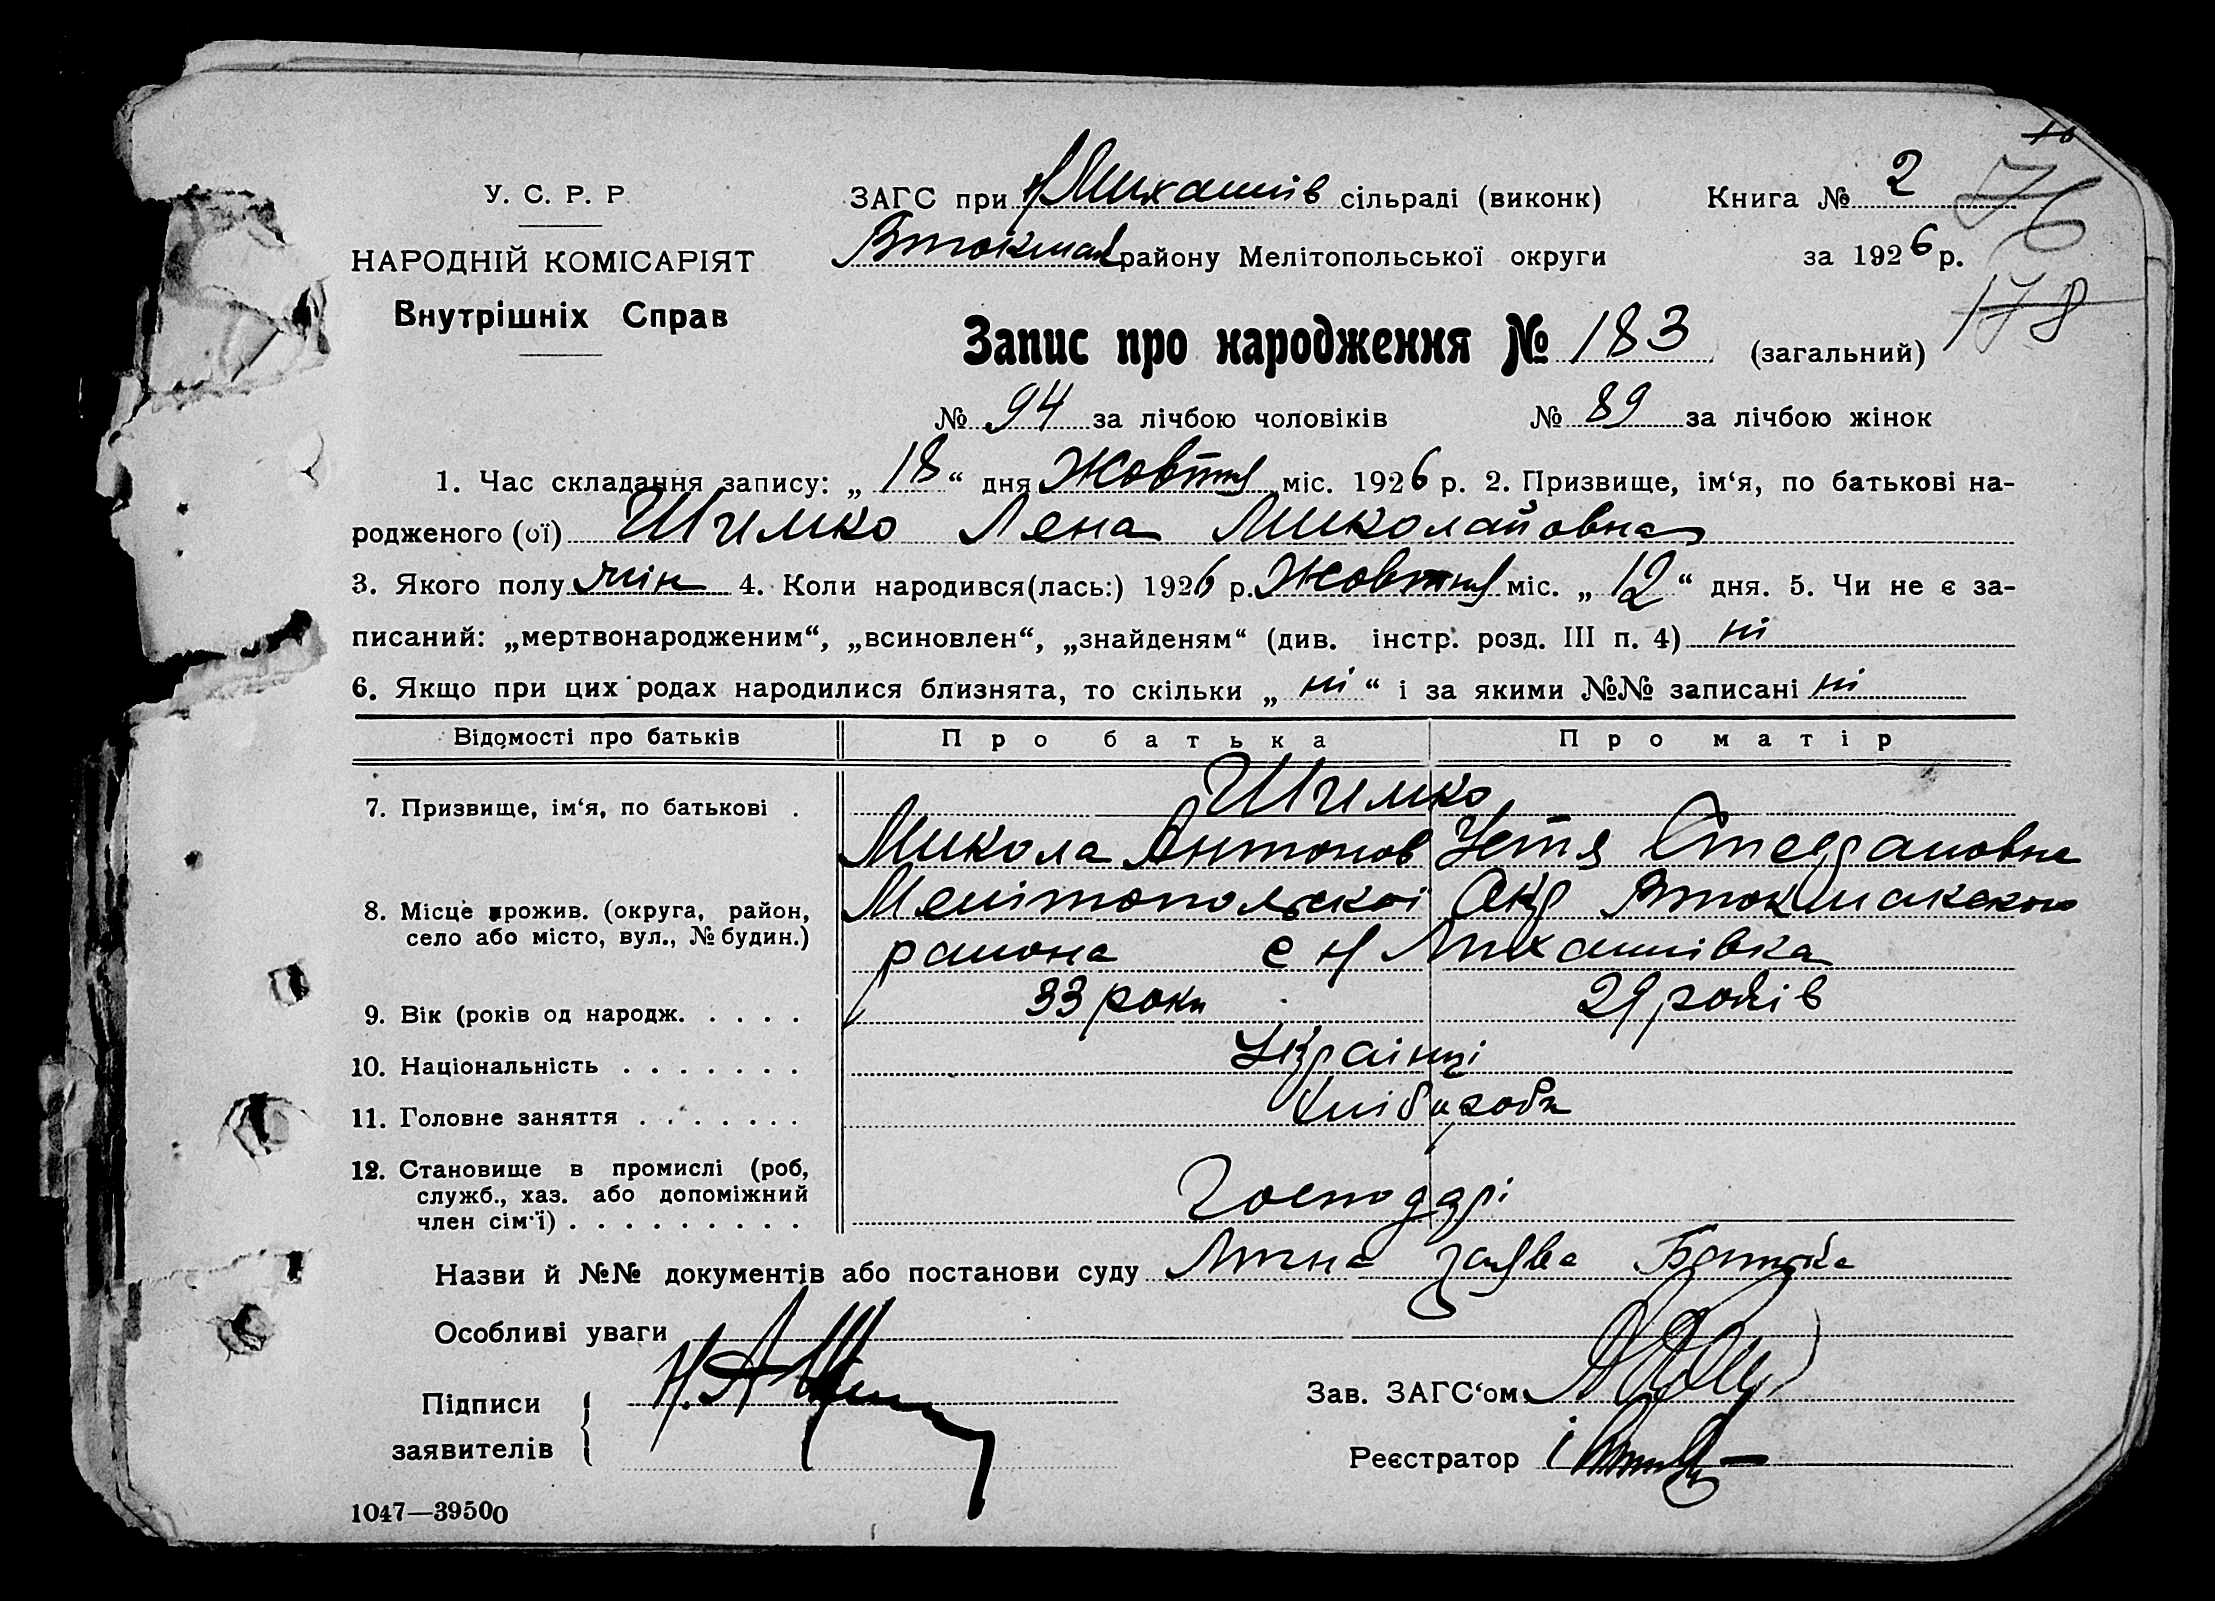 У. С. Р. Р.
НАРОДНІЙ КОМІСАРІЯТ
Внутрішніх Справ
ЗАГС при Н Михайлів сільраді (виконк)
Втокмак району Мелітопольської округи
Книга № 2
за 1926 р.
76
178
Запис про народження № 183 (загальний)
№ 94 за лічбою чоловіків № 89 за лічбою жінок
1. Час складання запису: „ 18 “ дня Жовтня міс. 1926 р. 2. Призвище, ім‘я, по батькові на-
родженого (ої) Шимко Лена Миколайовна
3. Якого полу жін 4. Коли народився(лась:) 1926 р. Жовтня міс. „ 12 “ дня. 5. Чи не є за-
писаний: „мертвонародженим“, „всиновлен“, „знайденям“ (див. інстр. розд. III п. 4) ні
6. Якщо при цих родах народилися близнята, то скільки „ ні “ і за якими №№ записані ні
Відомості про батьків Про батька Про матір
7. Призвище, ім‘я, по батькові . Шимко
Микола Антонов Устя Стефановна
8. Місце прожив. (округа, район, Мелітопольскої Окр Втокмакского
село або місто, вул., № будин.) района с Н Михайлівка
9. Вік (років од народж. . . . . 33 роки 29 років
10. Національність . . . . . . . Українці
11. Головне заняття . . . . . . . Хлібороби
12. Становище в промислі (роб,
служб., хаз. або допоміжний
член сім‘ї) . . . . . . . . . Господарі
Назви й №№ документів або постанови суду Лична заява Батька
Особливі уваги
Підписи
заявителів
Зав. ЗАГС‘ом
Реєстратор
1047—39500